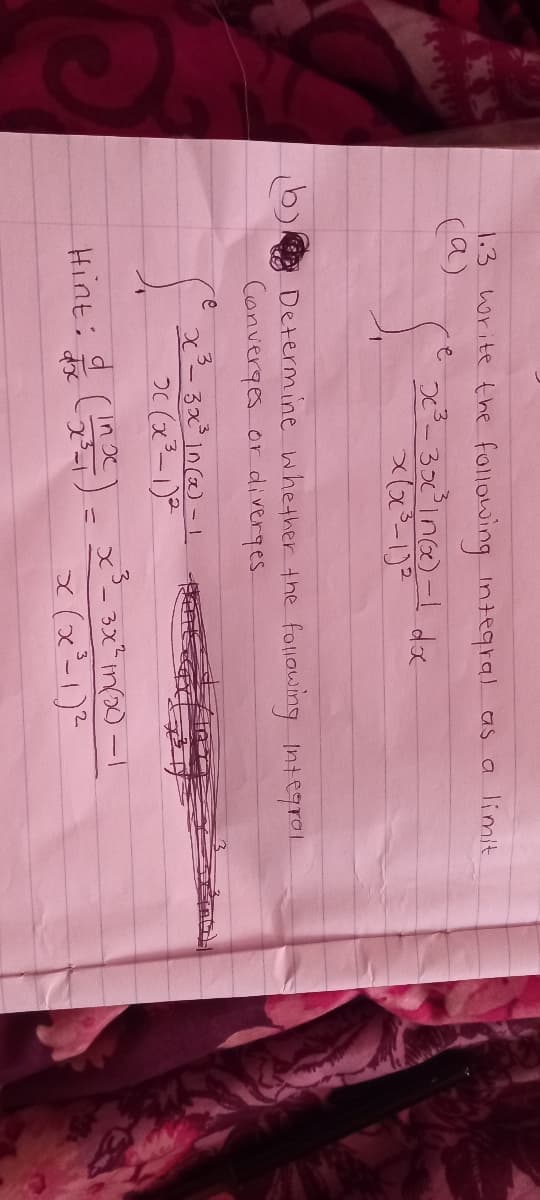 1.3 Write the following Integral as a limit
(a) ∫₁ᵉ (x³ - 3x³ ln(x) - 1) / (x(x³-1)²) dx
(b) Determine whether the following Integral
Converges or diverges
∫₁ᵉ (x³ - 3x³ ln(x) - 1) / (x(x³-1)²)
Hint: d/dx (ln x / (x³-1)) = (x³ - 3x² ln(x) - 1) / (x(x³-1)²)